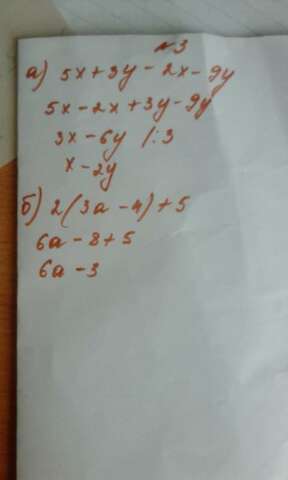 №3
а) 5x+3y-2x-9y
5x-2x+3y-9y
3x-6y /:3
x-2y
б) 2(3a-4)+5
6a-8+5
6a-3